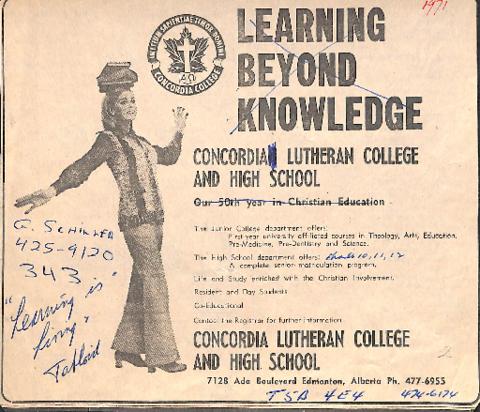 1971
INITIUM SAPIENTIAE TIMOR DOMINI
CONCORDIA COLLEGE
ΑΩ
LEARNING
BEYOND
KNOWLEDGE
CONCORDIA LUTHERAN COLLEGE
AND HIGH SCHOOL
Our 50th year in Christian Education
The Junior College department offers:
First year university affiliated courses in Theology, Arts, Education,
Pre-Medicine, Pre-Dentistry and Science.
The High School department offers: Grades 10, 11, 12
A complete senior matriculation program.
Life and Study enriched with the Christian Involvement.
Resident and Day Students
Co-Educational
Contact the Registrar for further information
CONCORDIA LUTHERAN COLLEGE
AND HIGH SCHOOL
7128 Ada Boulevard Edmonton, Alberta Ph. 477-6955
T5B 4E4 474-6174
G. SCHILLER
425-9120
343
"Learning is
living"
Tabloid
2